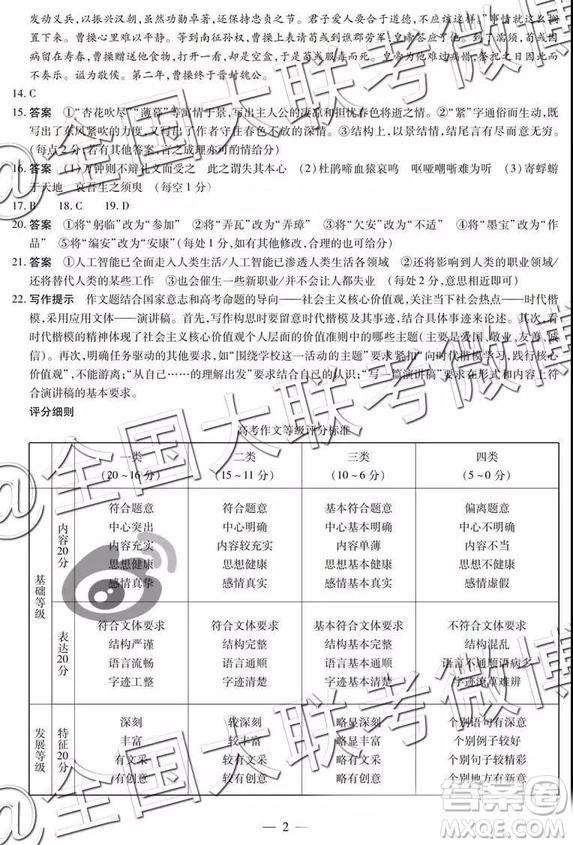 发动义兵，以振兴汉朝，虽然功勋卓著，还保持忠良之节。君子爱人要合于道德，不应该这样。”事情便
搁置下来。曹操心里难以平静。曹操南征孙权，军队驻扎在谯县，于是上表请让荀彧到谯郡劳军。
病留在寿春，曹操派人赠给荀彧食物，打开食盒，却是空的，于是服毒而死。
不奏乐。谥为敬侯。第二年，曹操终于晋封魏公。
14. C
15. 答案 ①“杏花吹尽”“薄暮”等寓情于景，写出主人公的凄凉和担忧春色将逝之情。②“紧”字通俗而生动，既
写出了东风紧吹的力度，又写出了作者守住春色不放的深情。③结构上，以景以情收结，
（每点2分，若有其他答案，言之成理亦可给分）
16. 答案 （1）万钟则不辩礼义而受之 此之谓失其本心 （2）杜鹃啼血猿哀鸣 呕哑嘲哳难为听 （3）寄蜉蝣
于天地 哀吾生之须臾 （每空1分）
17. B 18. C 19. D
20. 答案 ①将“躬临”改为“参加” ②将“弄瓦”改为“弄璋” ③将“欠安”改为“不适” ④将“墨宝”改为“作
品” ⑤将“编安”改为“安康”（每处1分，如有其他答案，言之成理亦可给分）
21. 答案 ①人工智能已全面走入人类生活/人工智能已渗透人类生活各领域 ②还将影响到人类的职业领域/
还将替代人类的某些工作 ③也会催生一些新职业/并不会让人都失业 （每处2分）
22. 写作提示 作文题结合国家意志和高考命题的导向——社会主义核心价值观，关注当下社会热点——时代楷
模，采用应用文体——演讲稿。首先，写作构思时要依据时代楷模及其事迹，结合具体事迹来论述。其次，时
代楷模的精神体现了社会主义核心价值观个人层面的价值要求和行为规范（主要是爱国、敬业、友善、诚
信）。再次，明确任务驱动的其他要求，如“围绕学校这一活动的主题”要紧扣“向时代楷模学习，践行核心
价值观”，不能游离；“从自己……的理解出发”要说真话，抒真情；“写一篇演讲稿”要求在形式和内容上符
合演讲稿的基本要求。
评分细则
高考作文等级评分标准
一类 二类 三类 四类
（20～16分） （15～11分） （10～6分） （5～0分）
基础等级
内容20分
符合题意 符合题意 基本符合题意 偏离题意
中心突出 中心明确 中心基本明确 中心不明确
内容充实 内容较充实 内容单薄 内容不当
思想健康 思想健康 思想基本健康 思想不健康
感情真挚 感情真实 感情基本真实 感情虚假
表达20分
符合文体要求 符合文体要求 基本符合文体要求 不符合文体要求
结构严谨 结构完整 结构基本完整 结构混乱
语言流畅 语言通顺 语言基本通顺 语言不通顺语病多
字迹工整 字迹清楚 字迹基本清楚 字迹潦草难辨
发展等级
特征20分
深刻 较深刻 略显深刻 个别语句有深意
丰富 较丰富 略显丰富 个别例子较好
有文采 较有文采 略有文采 个别句子较精彩
有创意 较有创意 略有创意 个别地方有新意
— 2 —
@全国大联考微博
答案圈
MXQE.COM